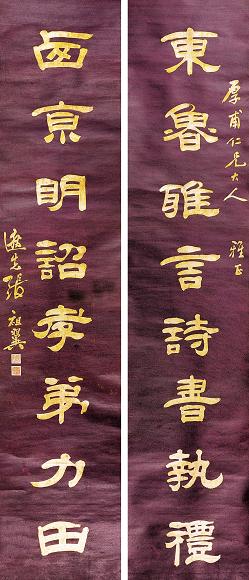 厚甫仁兄大人 雅正
東魯雅言詩書執禮
西京明詔孝弟力田
逖先張祖翼